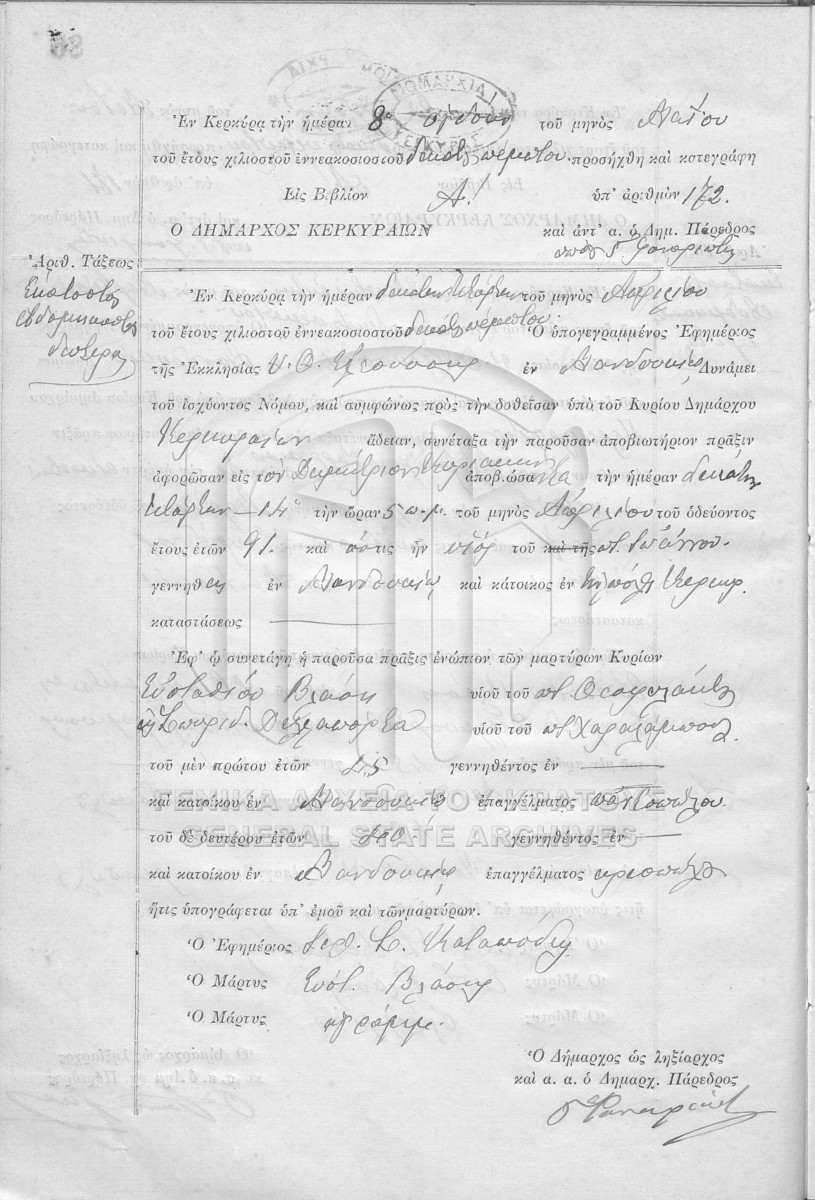 ΔΗΜΑΡΧΙΑ
ΚΕΡΚΥΡΑΣ
Ἐν Κερκύρᾳ τὴν ἡμέραν 8 ὀγδόην τοῦ μηνὸς Μαΐου
τοῦ ἔτους χιλιοστοῦ ἐννεακοσιοστοῦ δεκάτου πέμπτου προσήχθη καὶ κατεγράφη
Εἰς Βιβλίον Α! ὑπ' ἀριθμὸν 172.
Ο ΔΗΜΑΡΧΟΣ ΚΕΡΚΥΡΑΙΩΝ καὶ ἀντ' α. ὁ Δημ. Πάρεδρος
Ἀριθ. Τάξεως
Ἑκατοστὸς
ἑβδομηκοστὸς
δευτέρα
Ἐν Κερκύρᾳ τὴν ἡμέραν δεκάτην τετάρτην τοῦ μηνὸς Ἀπριλίου
τοῦ ἔτους χιλιοστοῦ ἐννεακοσιοστοῦ δεκάτου πέμπτου Ὁ ὑπογεγραμμένος Ἐφημέριος
τῆς Ἐκκλησίας Υ. Θ. Ἐλεούσης ἐν Μανδουκίῳ Δυνάμει
τοῦ ἰσχύοντος Νόμου, καὶ συμφώνως πρὸς τὴν δοθεῖσαν ὑπὸ τοῦ Κυρίου Δημάρχου
Κερκυραίων ἄδειαν, συνέταξα τὴν παροῦσαν ἀποβιωτήριον πρᾶξιν
ἀφορῶσαν εἰς τὸν Δημήτριον ἀποβιώσαντα τὴν ἡμέραν δεκάτην
τετάρτην - 14 τὴν ὥραν 5 π.μ. τοῦ μηνὸς Ἀπριλίου τοῦ ὁδεύοντος
ἔτους ἐτῶν 91. καὶ ὅστις ἦν υἱὸς τοῦ καὶ τῆς π. Ἰωάννου.
γεννηθεὶς ἐν Μανδουκίῳ καὶ κάτοικος ἐν
καταστάσεως
Ἐφ' ᾧ συνετάγη ἡ παροῦσα πρᾶξις ἐνώπιον τῶν μαρτύρων Κυρίων
Εὐσταθίου Βλάση υἱοῦ τοῦ π. Θεοφυλάκτου
Σπυρίδ. Δελλαπόρτα υἱοῦ τοῦ π. Χαραλάμπους.
τοῦ μὲν πρώτου ἐτῶν 45 γεννηθέντος ἐν
καὶ κατοίκου ἐν Μανδουκίῳ ἐπαγγέλματος παντοπώλου
ΓΕΝΙΚΑ ΑΡΧΕΙΑ ΤΟΥ ΚΡΑΤΟΥΣ
GENERAL STATE ARCHIVES
τοῦ δὲ δευτέρου ἐτῶν 40 γεννηθέντος ἐν
καὶ κατοίκου ἐν Μανδουκίῳ ἐπαγγέλματος κρεοπώλη
ἥτις ὑπογράφεται ὑπ' ἐμοῦ καὶ τῶν μαρτύρων.
Ὁ Ἐφημέριος
Ὁ Μάρτυς Εὐστ. Βλάσης
Ὁ Μάρτυς ἀγράμμ.
Ὁ Δήμαρχος ὡς ληξίαρχος
καὶ α. α. ὁ Δημαρχ. Πάρεδρος